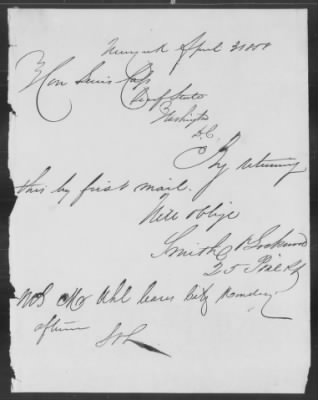 Newyork April 2 1858
Hon Lewis Cass
Sec of State
Washington
D.C.
By returning
this by first mail.
Will oblige
Smith & Lockwood
25 Pine St
Mr Uhl leaves City Monday
afternn
S&L